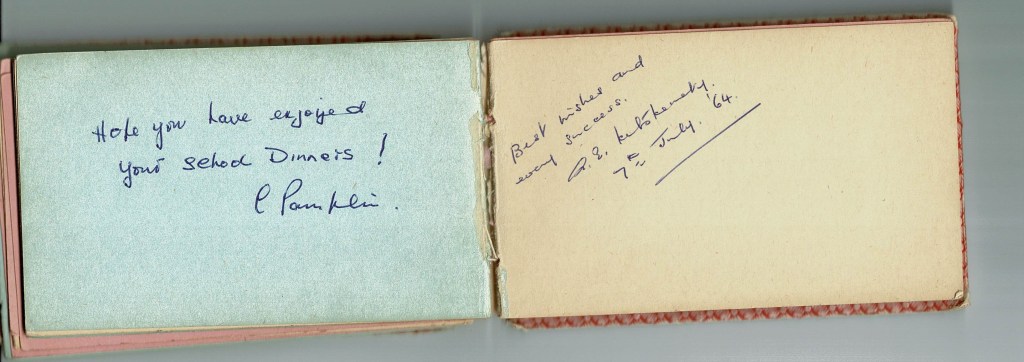 Hope you have enjoyed
your school Dinners !
C Pamplin.
Best wishes and
every success.
7th July. '64.